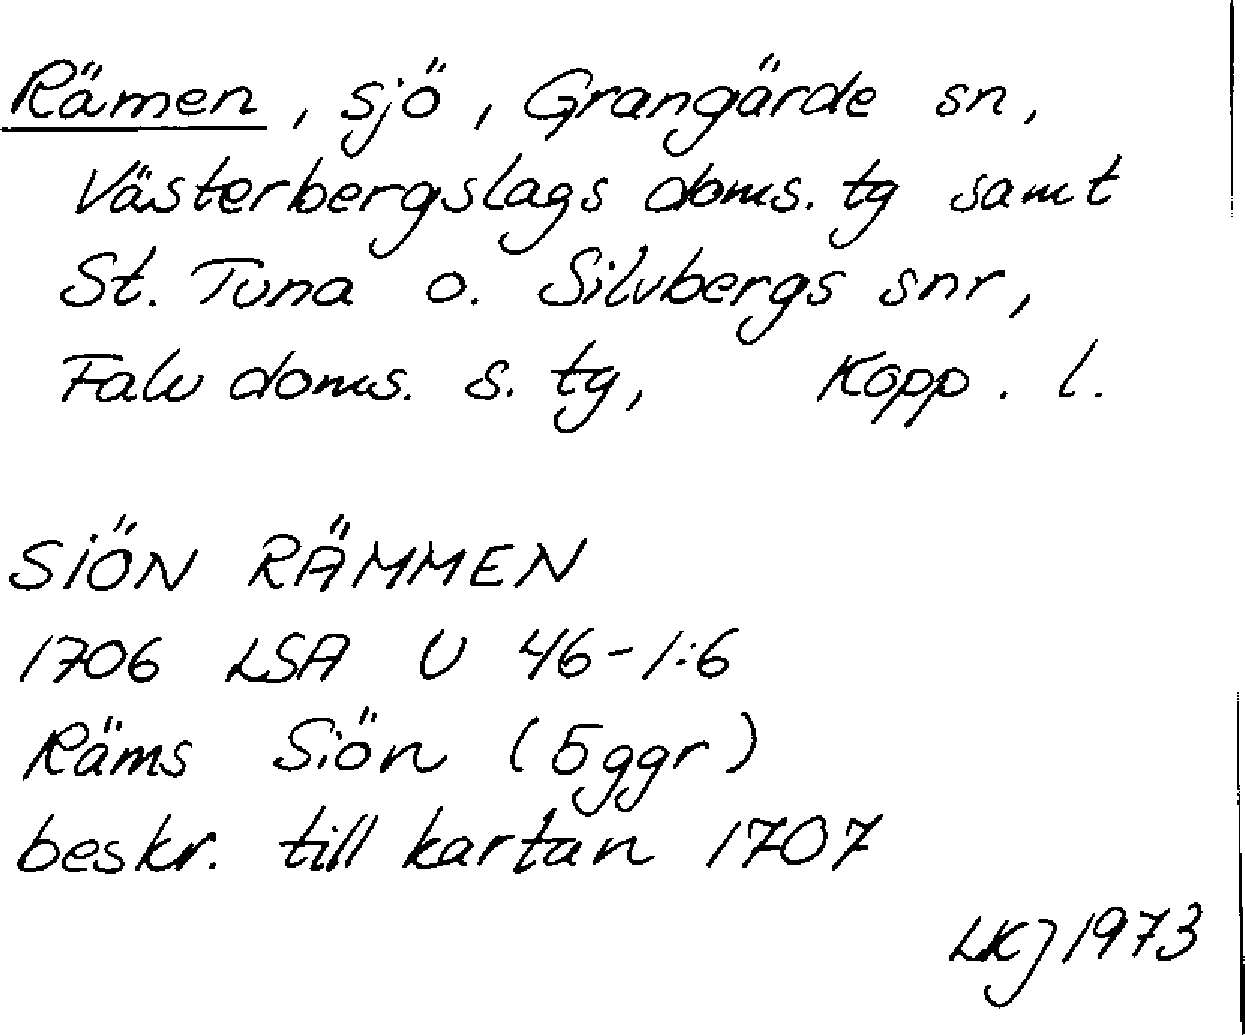 Rämen, sjö, Grangärde sn,
Västerbergslags doms. tg samt
St. Tuna o. Silvbergs snr,
Falu doms. s. tg, Kopp. l.
SIÖN RÄMMEN
1706 LSA U 46-1:6
Räms Siön (5 ggr)
beskr. till kartan 1707
LKJ 1973